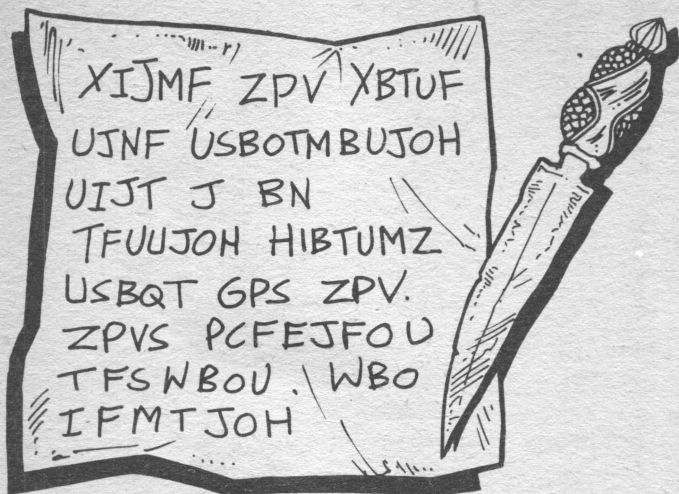 XIJMF ZPV XBTUF
UJNF USBOTMBUJOH
UIJT J BN
TFUUJOH HIBTUMZ
USBQT GPS ZPV.
ZPVS PCFEJFOU
TFSWBOU. WBO
IFMTJOH